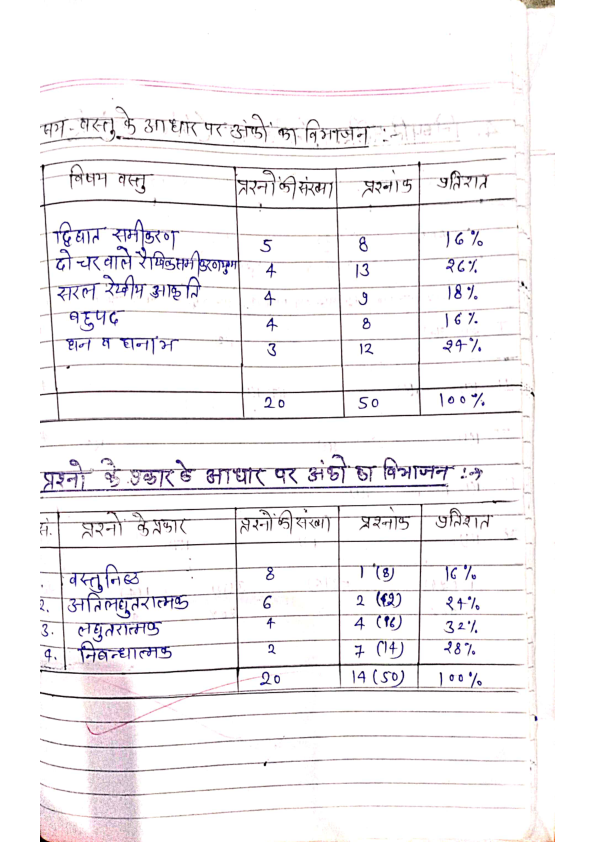 वस्तु के आधार पर अंकों का विभाजन :-
विषय वस्तु प्रश्नों की संख्या प्रश्नांक प्रतिशत
द्विघात समीकरण 5 8 16%
दो चर वाले रैखिक समीकरण युग्म 4 13 26%
सरल रेखीय आकृति 4 9 18%
बहुपद 4 8 16%
घन व घनाभ 3 12 24%
20 50 100%
प्रश्नों के प्रकार के आधार पर अंकों का विभाजन :→
सं. प्रश्नों के प्रकार प्रश्नों की संख्या प्रश्नांक प्रतिशत
वस्तुनिष्ठ 8 1 (8) 16%
2. अतिलघुतरात्मक 6 2 (12) 24%
3. लघुतरात्मक 4 4 (16) 32%
4. निबन्धात्मक 2 7 (14) 28%
20 14 (50) 100%